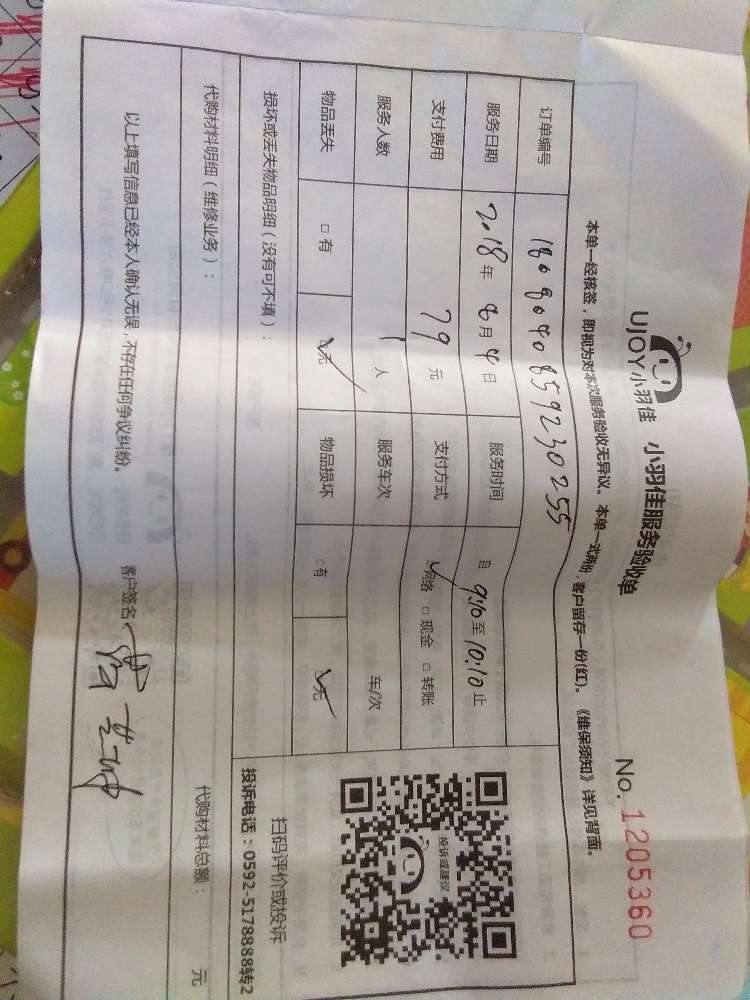 UJOY小羽佳 小羽佳服务验收单 No. 1205360
本单一经核签，即视为对本次服务验收无异议。本单一式两份，客户留存一份(红)。《维保须知》详见背面。
订单编号 1808040859230255
服务日期 2018年8月4日 服务时间 自 9:10 至 10:10 止
支付费用 79 元 支付方式 ☑网络 □现金 □转账
服务人数 1 人 服务车次 车/次
物品丢失 □有 ☑无 物品损坏 □有 ☑无
投诉或建议
扫码评价或投诉
投诉电话：0592-5178888转2
损坏或丢失物品明细（没有可不填）：
代购材料明细（维修业务）： 代购材料总额： 元
以上填写信息已经本人确认无误，不存在任何争议纠纷。 客户签名：